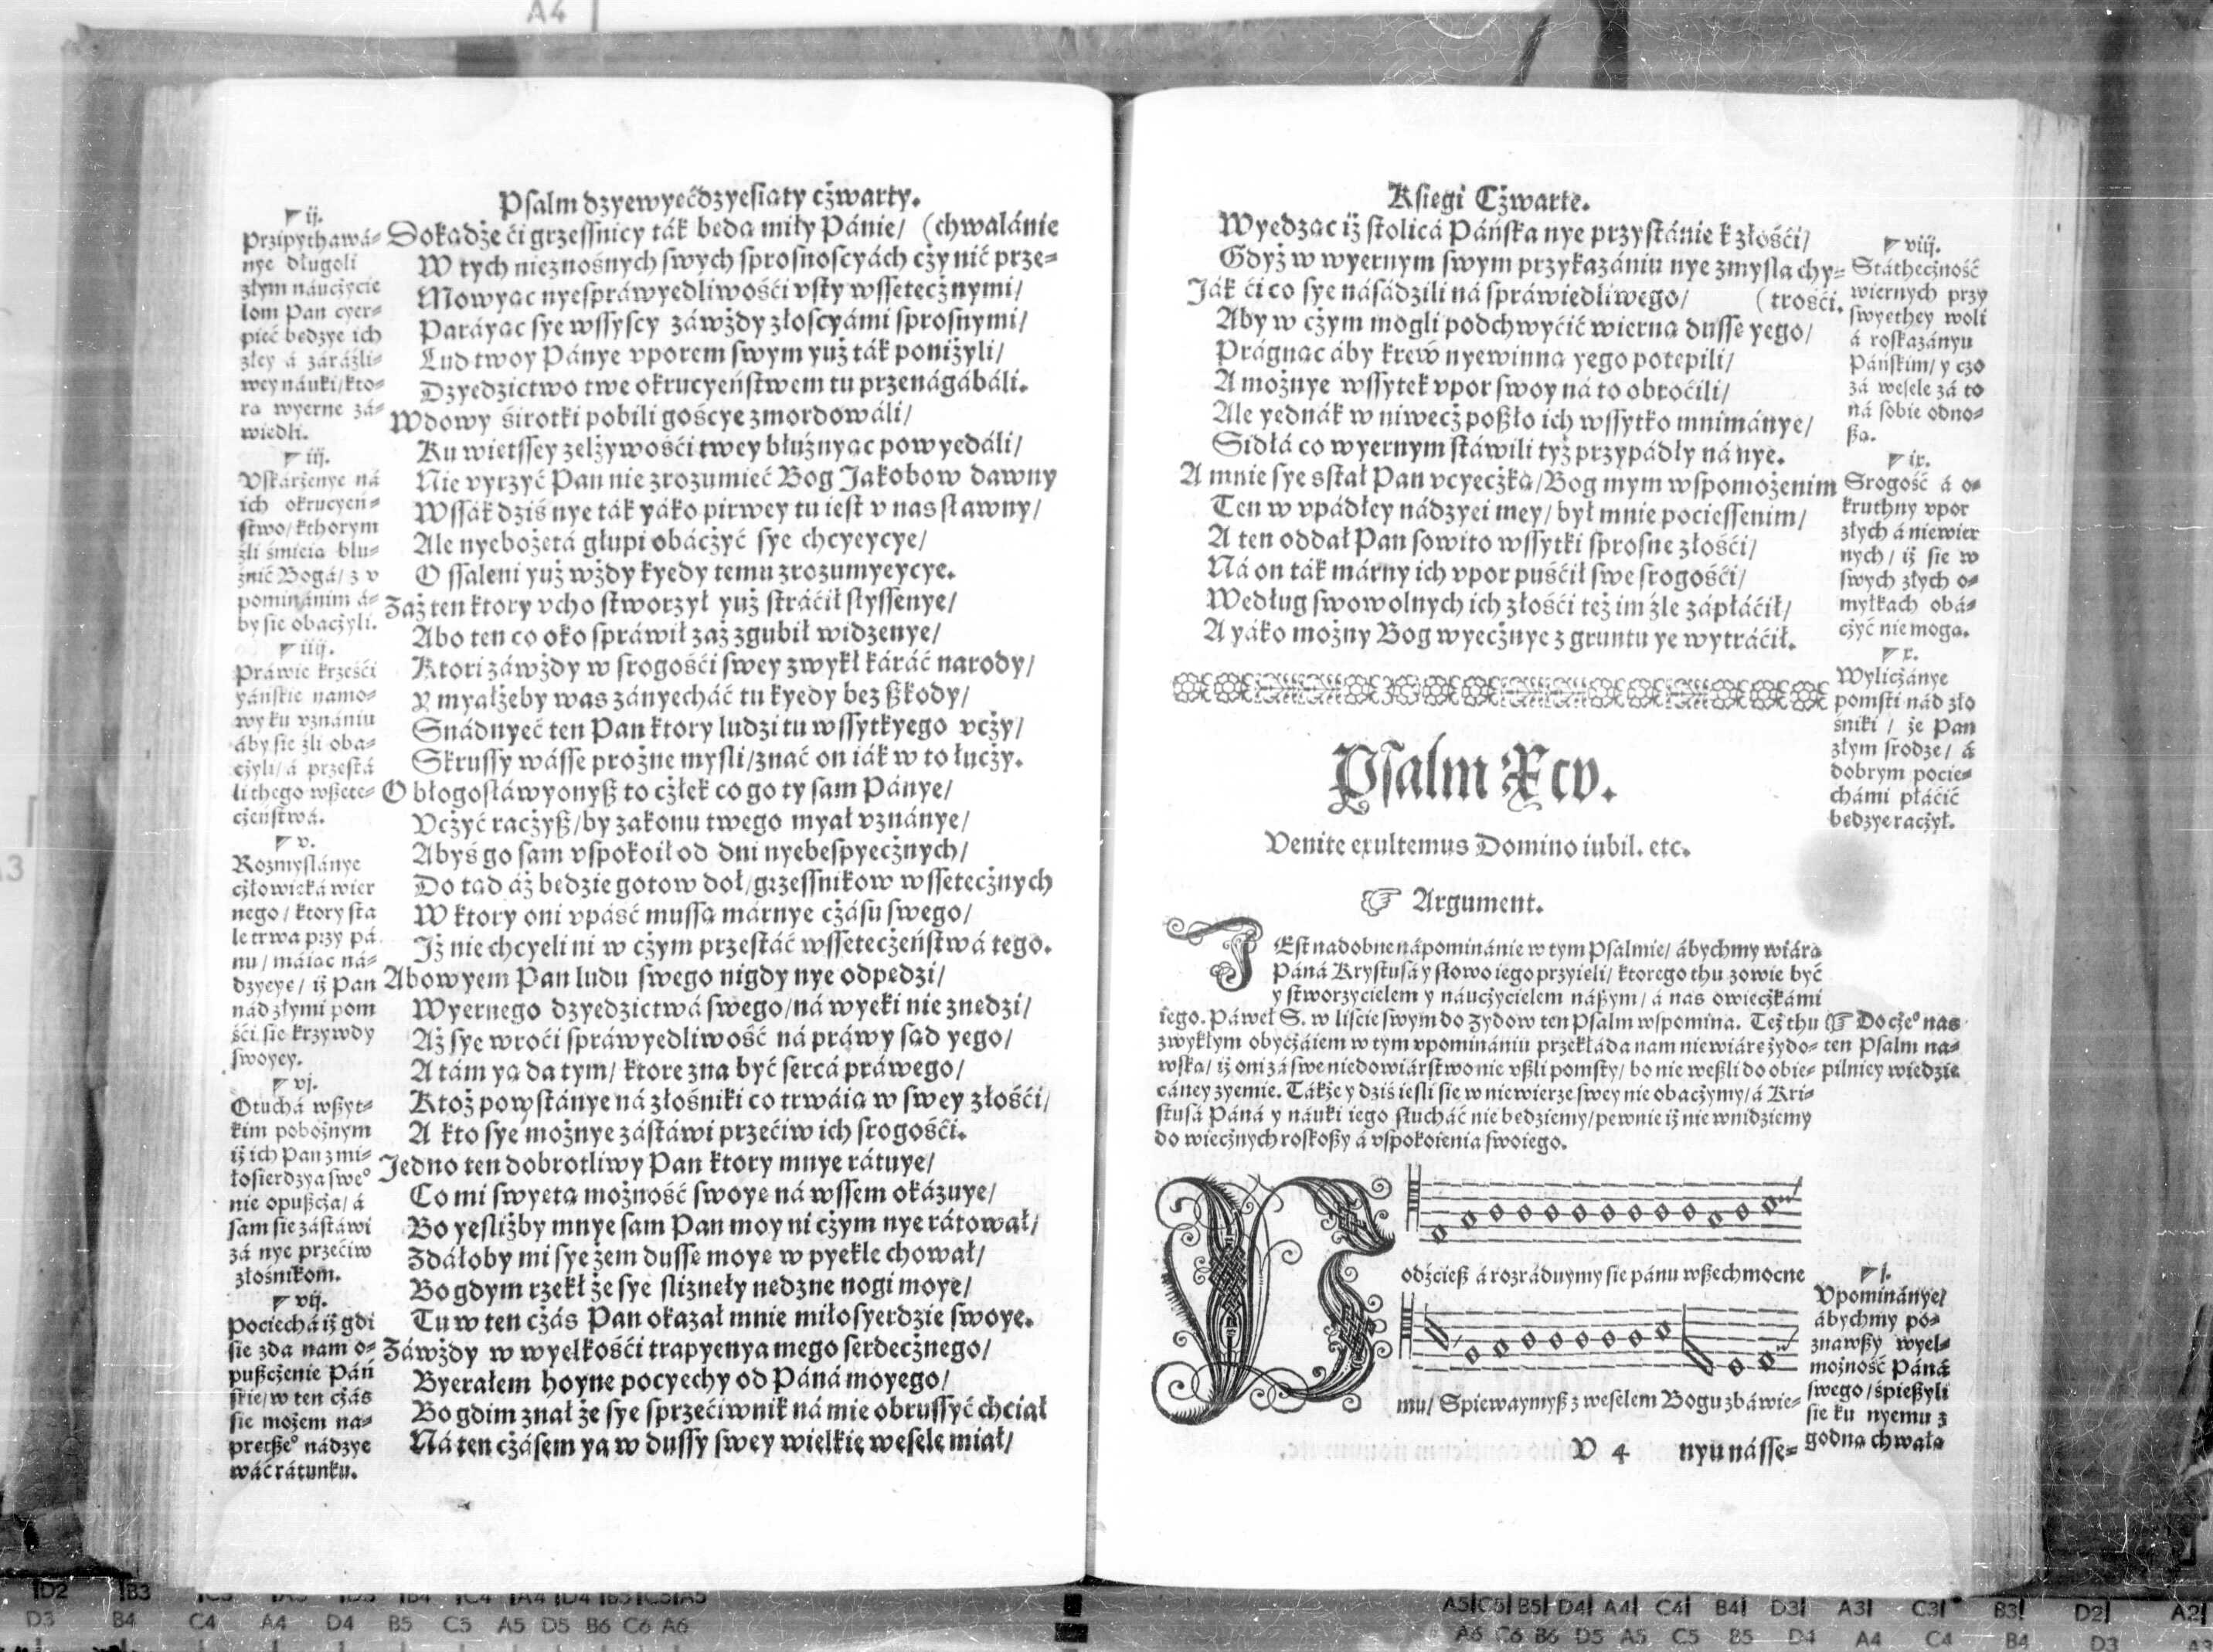 Psalm dzyewyećdzyesiąty cżwarty.
ij.
Przipythawá-
nye długoli
złym náucżycie
lom Pan cyer-
pieć bedzye ich
złey á záráźli-
wey náuki/kto-
ra wyerne zá-
wiedli.
iij.
Vskárżenye ná
ich okrucyeń-
stwo/kthorym
źli śmieia blu-
źnić Bogá/z v
pominánim á-
by sie obacżyli.
iiij.
Práwie krześći
yáńskie namo-
wy ku vznániu
áby sie źli oba-
cżyli/á przestá
li thego wßete-
cżeństwá.
v.
Rozmyslánye
cżłowieká wier
nego/ktory sta
le trwa przy pá
nu/máiac ná-
dzyeye/iż Pan
nád złymi pom
śći sie krzywdy
swoyey.
vj.
Otuchá wßyt-
kim pobożnym
iż ich Pan z mi-
łosierdzya sweº
nie opußcża/á
sam sie zástáwi
zá nye przećiw
złośnikom.
vij.
Pociechá iż gdi
sie zda nam o-
pußcżenie Páń
skie/w ten cżás
sie możem na-
pretßeº nádzye
wáć rátunku.
Dokądże ći grzessnicy ták beda miły Pánie/ (chwalánie
W tych nieznośnych swych sprosnoscyách cży nić prze-
Mowyac nyespráwyedliwośći vsty wssetecżnymi/
Paráyac sye wssyscy záwżdy złoscyámi sprosnymi/
Lud twoy Pánye vporem swym yuż ták poniżyli/
Dzyedzictwo twe okrucyeństwem tu przenágábáli.
Wdowy śirotki pobili gośćye zmordowáli/
Ku wietssey zelżywośći twey błużnyac powyedáli/
Nie vyrzyć Pan nie zrozumieć Bog Jakobow dawny
Wssák dziś nye ták yáko pirwey tu iest v nas sławny/
Ale nyebożetá głupi obácżyć sye chcyeycye/
O ssaleni yuż wżdy kyedy temu zrozumyeycye.
Zaż ten ktory vcho stworzył yuż stráćił słyssenye/
Abo ten co oko spráwił zaż zgubił widzenye/
Ktori záwżdy w srogośći swey zwykł káráć narody/
Y myałżeby was zányecháć tu kyedy bez ßkody/
Snádnyeć ten Pan ktory ludzi tu wssytkyego vcży/
Skrussy wásse prożne mysli/znać on iák w to łucży.
O błogosláwyonyß to cżłek co go ty sam Pánye/
Vcżyć racżyß/by zakonu twego myał vznánye/
Abyś go sam vspokoił od dni nyebespyecżnych/
Do tad áż bedzie gotow doł/grzessnikow wssetecżnych
W ktory oni vpáść mussa márnye cżásu swego/
Jż nie chcyeli ni w cżym przestáć wssetecżeństwá tego.
Abowyem Pan ludu swego nigdy nye odpedzi/
Wyernego dzyedzictwá swego/ná wyeki nie znedzi/
Aż sye wroći spráwyedliwość ná práwy sad yego/
A tám ya da tym/ktore zna być sercá práwego/
Ktoż powstánye ná złośniki co trwáia w swey złośći/
A kto sye możnye zástáwi przećiw ich srogośći.
Jedno ten dobrotliwy Pan ktory mnye rátuye/
Co mi swyeta możność swoye ná wssem okázuye/
Bo yesliżby mnye sam Pan moy ni cżym nye rátował/
Zdáłoby mi sye żem dusse moye w pyekle chował/
Bo gdym rzekł że sye slizneły nedzne nogi moye/
Tu w ten cżás Pan okazał mnie miłosyerdzie swoye.
Záwżdy w wyelkośći trapyenya mego serdecżnego/
Byerałem hoyne pocyechy od Páná moyego/
Bo gdim znał że sye sprzećiwnik ná mie obrussyć chciał
Ná ten cżásem ya w dussy swey wielkie wesele miał/
Ksiegi Cżwarte.
Wyedzac iż stolicá Páńska nye przystánie k złośći/
Gdyż w wyernym swym przykazániu nye zmysla chy-
Ják ći co sye násádzili ná spráwiedliwego/ (trośći.
Aby w cżym mogli podchwyćić wierna dusse yego/
Prágnac áby krew nyewinna yego potepili/
A możnye wssytek vpor swoy ná to obroćili/
Ale yednák w niwecż poßło ich wssytko mnimánye/
Sidłá co wyernym stáwili tyż przypádły ná nye.
A mnie sye sstał Pan vcyecżka/Bog mym wspomożenim
Ten w vpádłey nádzyei mey/był mnie pociessenim/
A ten oddał Pan sowito wssytki sprosne złośći/
Ná on ták márny ich vpor puśćił swe srogośći/
Według swowolnych ich złośći też im źle zápłáćił/
A yáko możny Bog wyecżnye z gruntu ye wytráćił.
viij.
Státhecżność
wiernych przy
swyethey woli
á roskazányu
Páńskim/y czo
zá wesele zá to
ná sobie odno-
ßa.
ix.
Srogość á o-
kruthny vpor
złych á niewier
nych/iż sie w
swych złych o-
myłkach obá-
cżyć nie moga.
x.
Wylicżánye
pomsti nád zło
śniki/że Pan
złym srodze/á
dobrym pocie-
chámi płáćić
bedzye racżył.
Psalm Xcv.
Venite exultemus Domino iubil. etc.
☞ Argument.
JEst nadobne nápominánie w tym Psalmie/ábychmy wiára
Páná Krystusá y słowo iego przyieli/ktorego thu zowie być
y stworzycielem y náucżycielem náßym/á nas owiecżkámi
iego. Páweł S. w liście swym do Zydow ten Psalm wspomina. Też thu
zwykłym obycżáiem w tym vpominániu przekłáda nam niewiáre żydo-
wska/iż oni zá swe niedowiárstwo nie vßli pomsty/bo nie weßli do obie-
cáney zyemie. Tákże y dziś iesli sie w niewierze swey nie obacżymy/á Kri-
stusá Páná y náuki iego słucháć nie bedziemy/pewnie iż nie wnidziemy
do wiecżnych roskoßy á vspokoienia swoiego.
☞ Do cżeº nas
ten Psalm na-
pilniey wiedzie
POdźcieß á rozráduymy sie pánu wßechmocne
mu/ Spiewaymyß z weselem Bogu zbáwie-
j.
Vpominánye/
ábychmy po-
znawßy wyel-
możność Páná
swego/śpießyli
sie ku nyemu z
godna chwała
V 4 nyu násse-